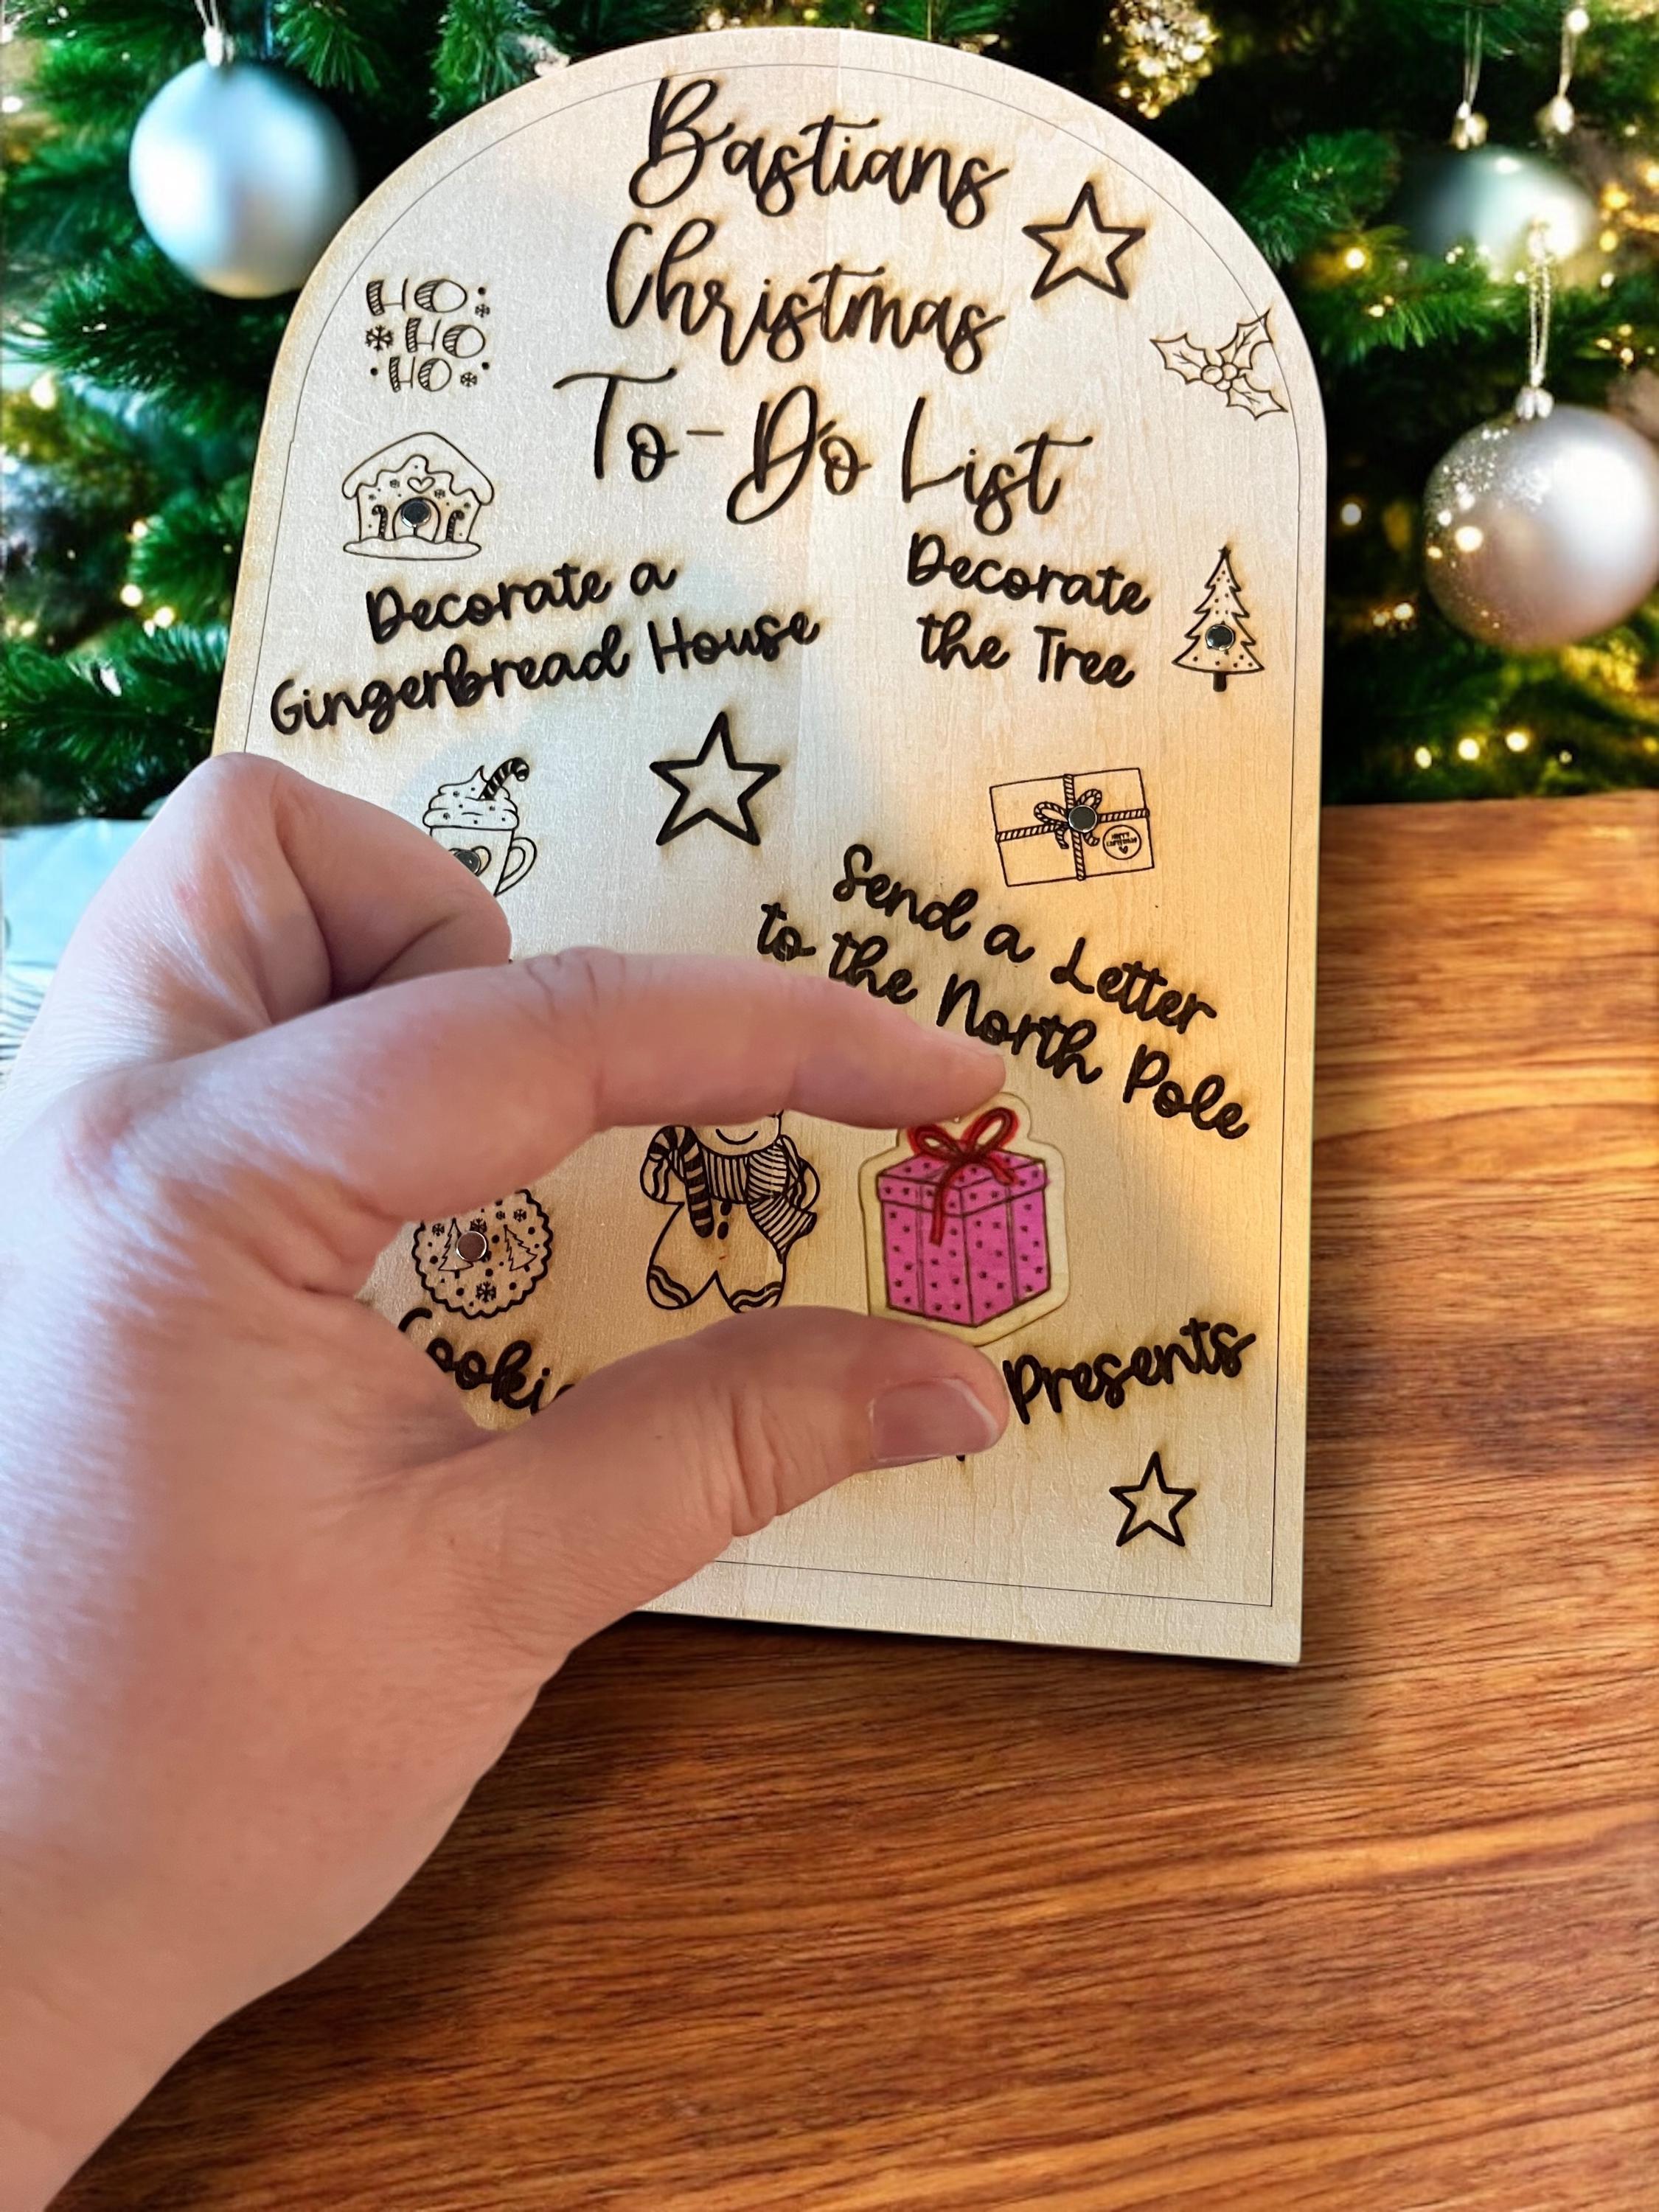 Bastians
Christmas
To-Do List
HO
HO
HO
Decorate a
Gingerbread House
Decorate
the Tree
Send a Letter
to the North Pole
Presents